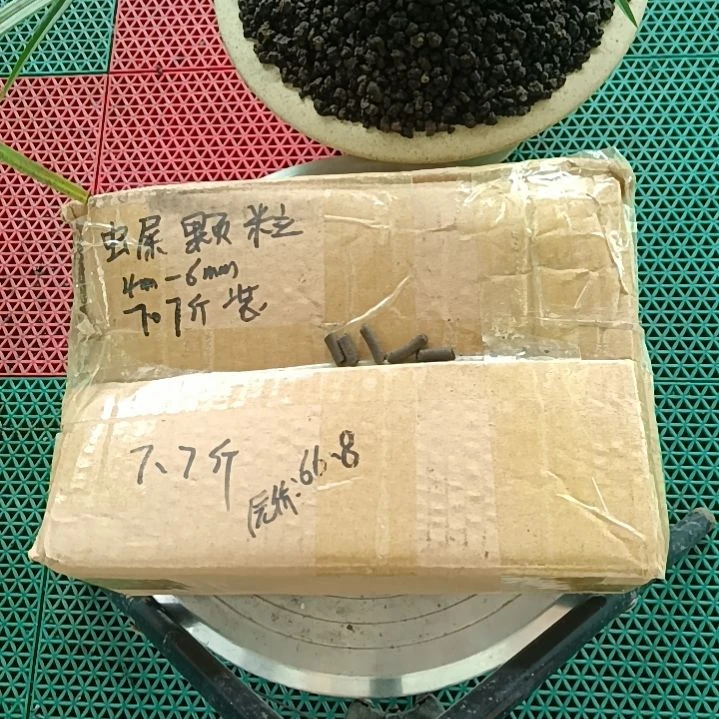 虫屎颗粒
4m-6mm
7.7斤装
7.7斤
原价:66.8